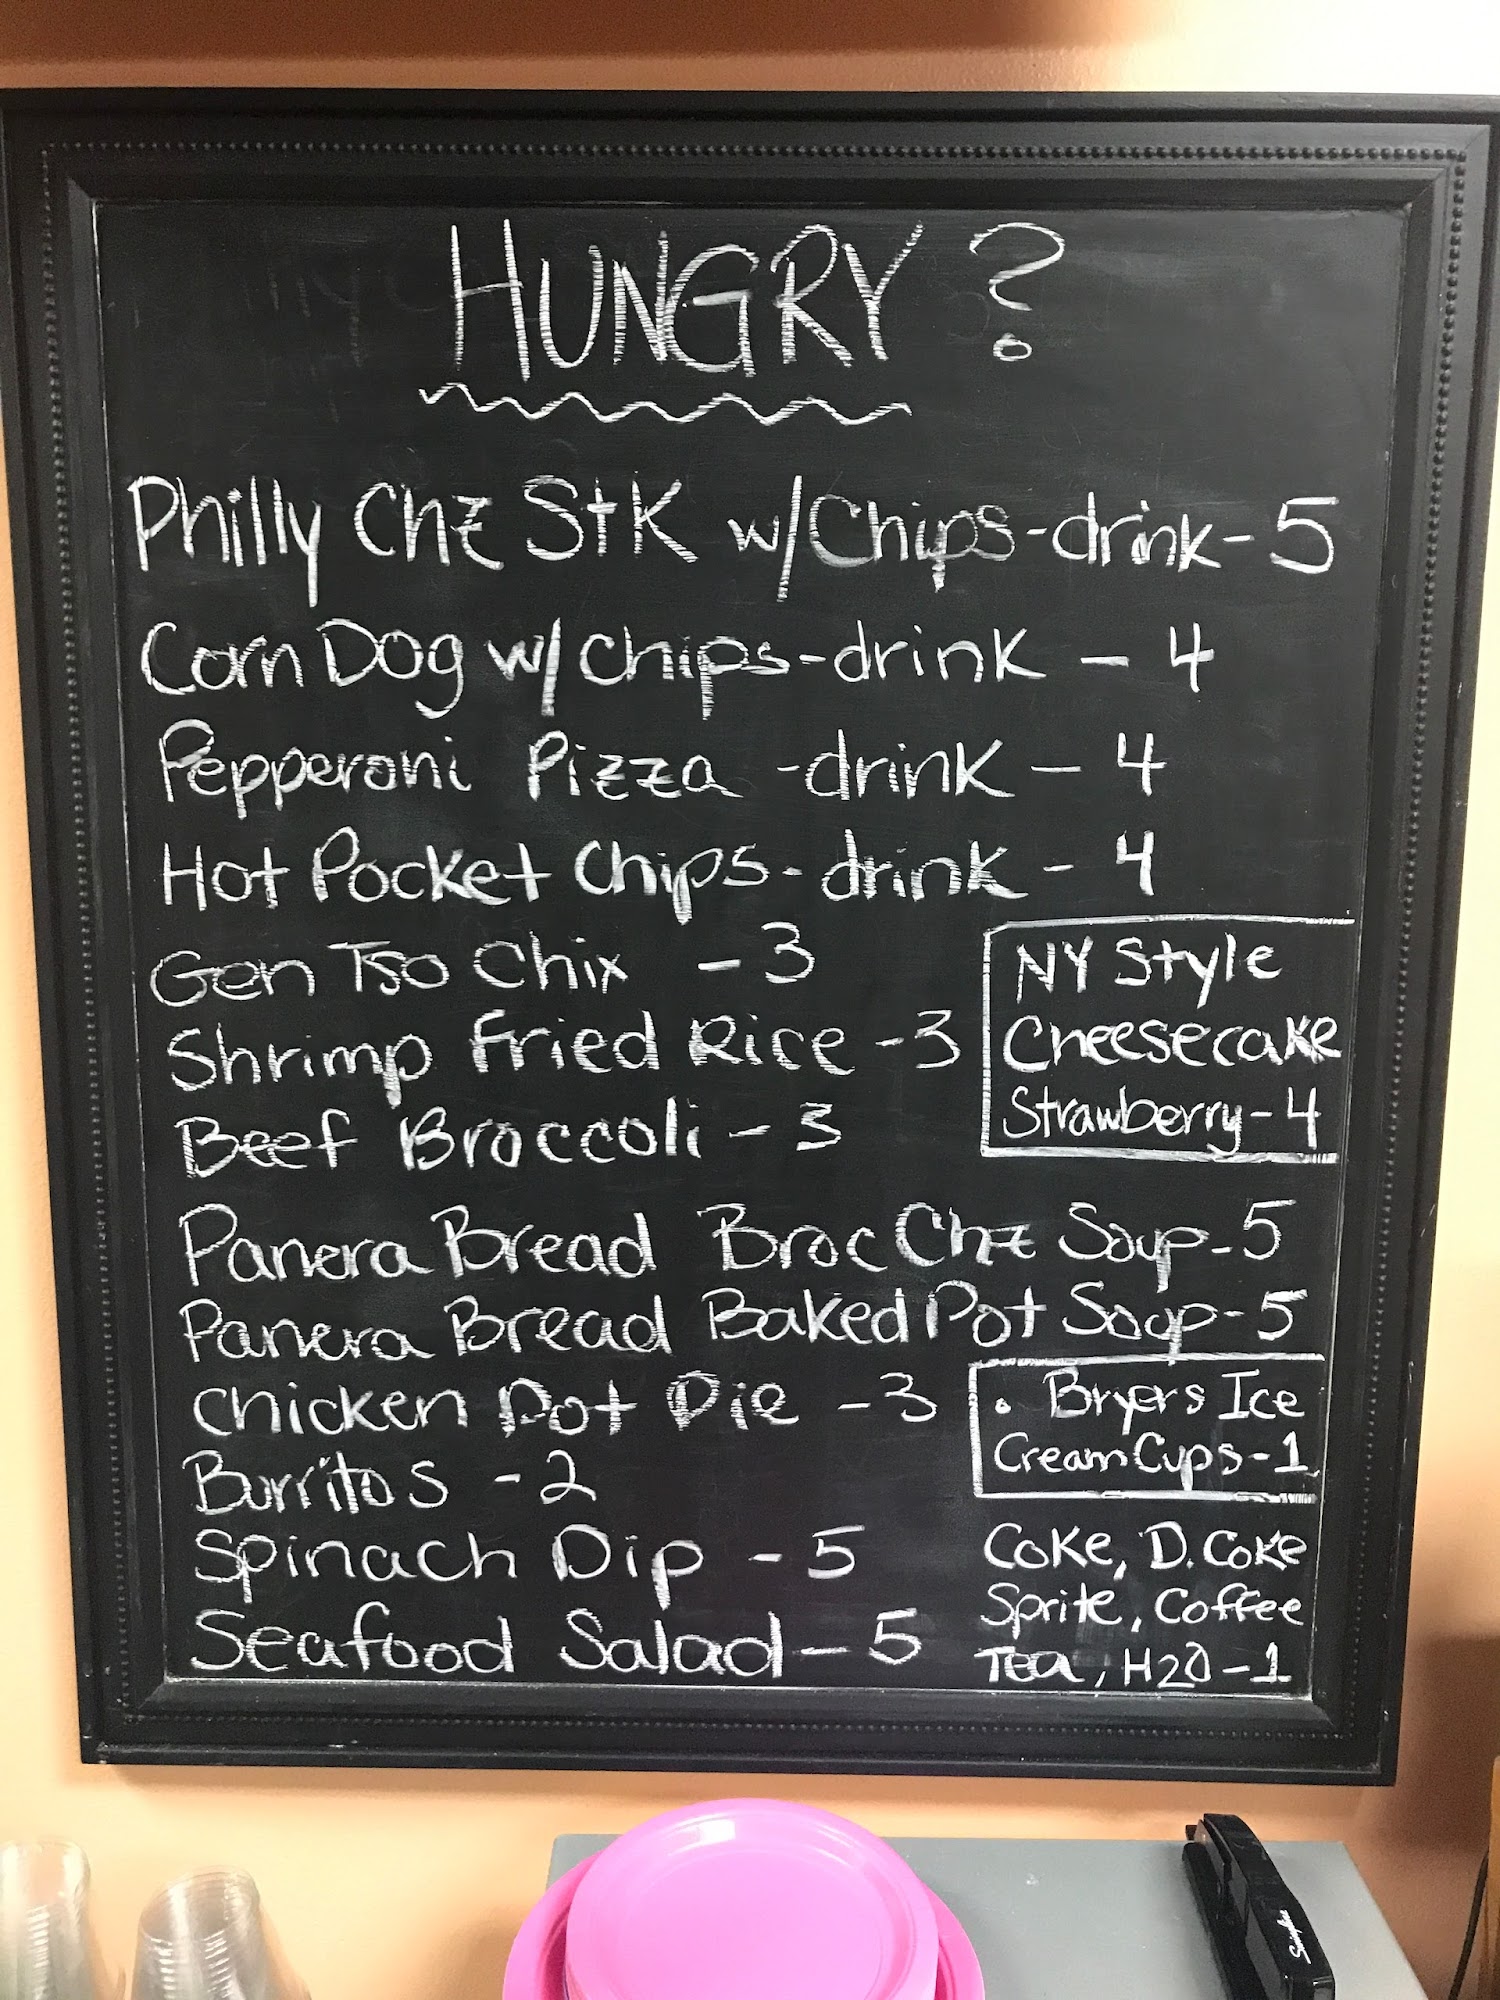 HUNGRY ?
Philly Chz Stk w/Chips-drink-5
Corn Dog w/ chips-drink - 4
Pepperoni Pizza -drink - 4
Hot Pocket Chips-drink - 4
Gen Tso Chix - 3
Shrimp Fried Rice - 3
Beef Broccoli - 3
NY Style
Cheesecake
Strawberry-4
Panera Bread Broc Chz Soup-5
Panera Bread Baked Pot Soup-5
Chicken Pot Pie - 3
Burritos - 2
Spinach Dip - 5
Seafood Salad - 5
• Bryers Ice
Cream Cups-1
Coke, D. Coke
Sprite, Coffee
Tea, H2O-1